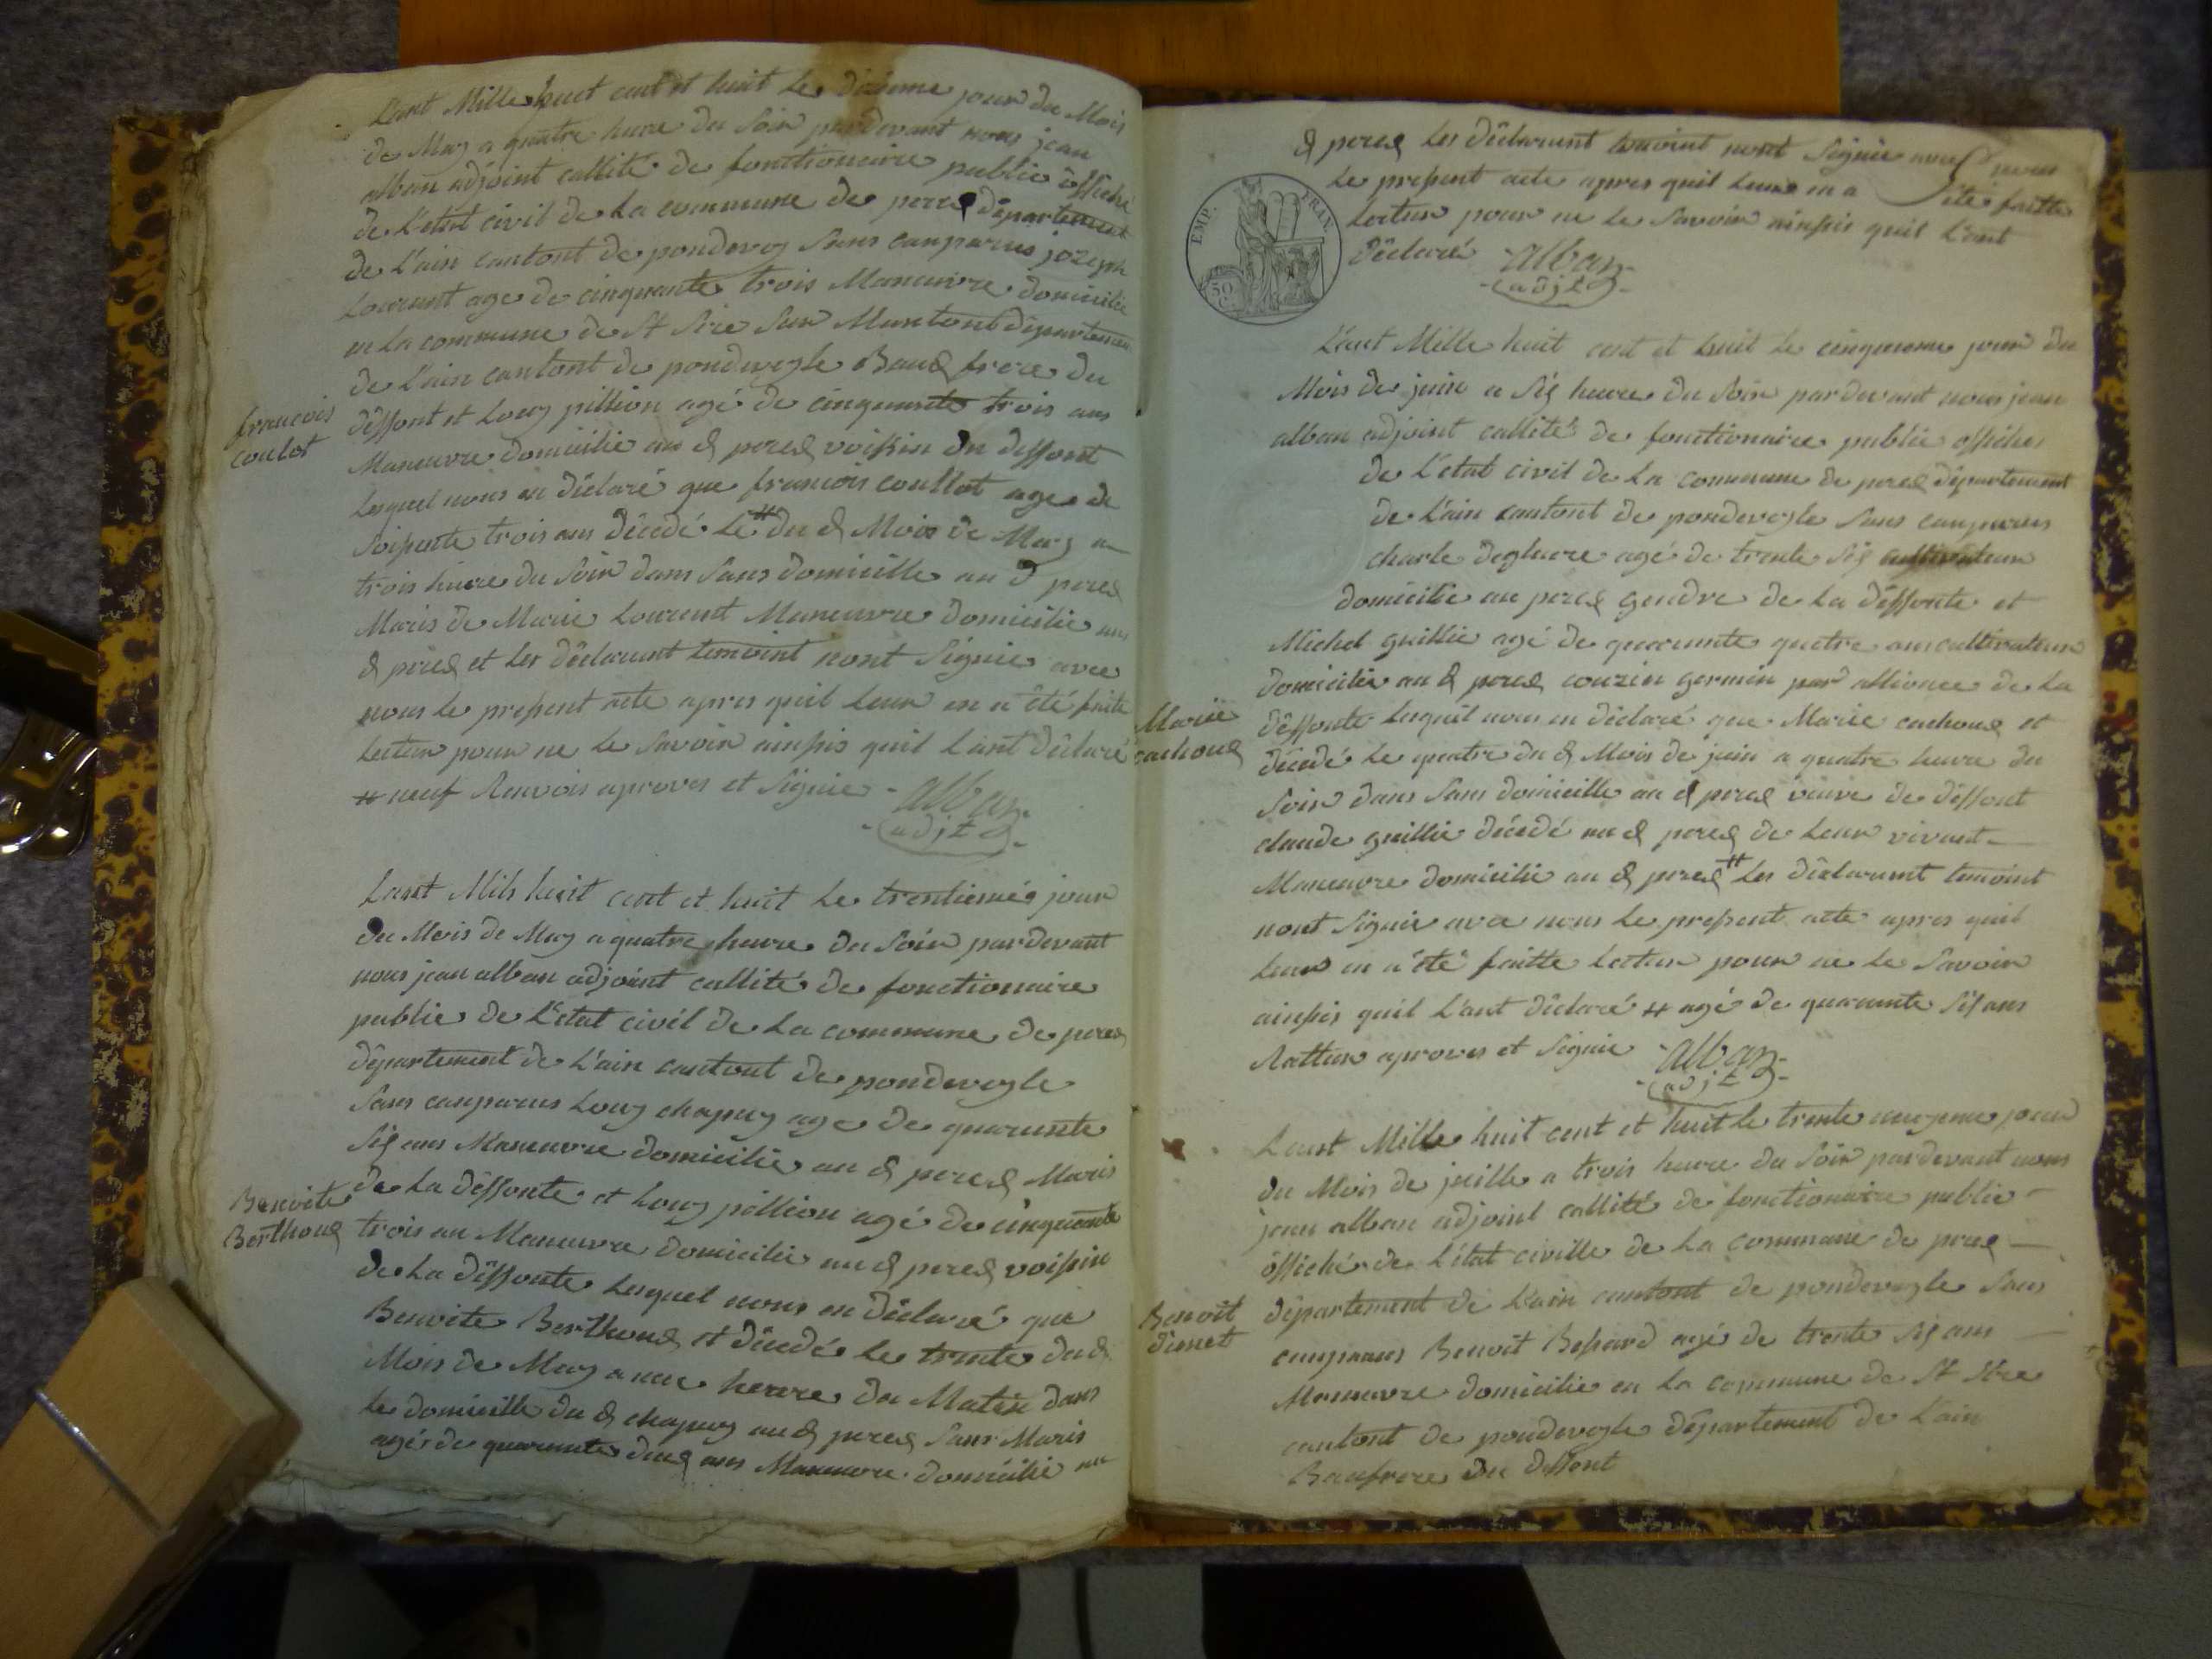 Lant Mille huet cent et huit Le dixieme jour du Mois
de May a quatre heure du Soir pardevant nous jean
alban adjoint callité de fonctionaire public offiché
de L'etat civil de La commune de perex departement
de L'ain cantont de pondevey Sans comparus jozeph
Lourent age de cinquante trois Maneuvre domicilie
en La commune de St Sire Sur Mantont département
de L'ain cantont de pondevegle Baux frere du
déffont et Louy pillion agé de cinquante trois ans
Maneuvre domicilie au d perex voissin du deffont
Lesquel nous en déclaré que francois coullot age de
francois
coulot
Soissente trois ans décedé Le # du d Mois de May a
trois heure du Soir dans Sans domicille au d perex
Maris de Marie Lourent Maneuvre domicilie au
d perex et Les déclarant temoint nont Signie avec
nous Le present acte apres quil Leur en a été faite
Lecteur pour ne Le Savoir ainssis quil L'ant déclaré
# neuf Renvois aproves et Signie alban
adjt
Lant Mils huit cent et huit Le trentiemes jour
du Mois de May a quatre heure du Soir pardevant
nous jean alban adjoint callité de fonctionaire
public de L'etat civél de La commune de perex
département de L'ain cantont de pondevegle
Sans comparus Louy chapuy age de quarente
Six ans Maneuvre domicilie au d perex Maris
de La déffonte et Louy pillion agé de cinquante
Benoite
Berthoux
trois an Maneuvre domicilie au d perex voissin
de La déffonte Lesquel nous en déclaré que
Benoite Berthoux et décedé Le trente du d
Mois de May a une heure du Matin dans
Le domicille du d chapuy au d perex Sans Maris
agér de quarente deux ans Maneuvre domicilie au
d perex Les déclarant temoint nont Signie avec nous
Le present acte apres quil Leur en a été faitte
Lecteur pour ne Le Savoir ainssis quil L'ant
déclaré alban
adjt
EMP. FRAN.
50
C.
L'ant Mille huit cent et huit Le cinquieme jour du
Mois de juin a Six heure du Soir pardevant nous jean
alban adjoint callité de fonctionaire public officher
de L'etat civil de La commune de perex département
de L'ain cantont de pondevegle Sans comparus
charle degluere agé de trente Six cultivateur
domicilie au perex gendre de La déffonte et
Michel guillie agé de quarente quatre ans cultivateur
domicilie au d perex couzin germin par alliance de La
Marie
cachoux
déffonte Lesquil nous en déclaré que Marie cachoux et
décedé Le quatre du d Mois de juin a quatre heure du
Soir dans Sans domicille au d perex veuve de deffont
claude guillie décédé au d perex de Leur vivant
Maneuvre domicilie au d perex # Les déclarant temoint
nont Signie avec nous Le present acte apres quil
Leur en a été faitte Lecteur pour ne Le Savoir
ainssis quil L'ant déclaré # agé de quarente Six ans
Ratture aproves et Signie alban
adjt
Lant Mille huit cent et huit Le trente unyeme jour
du Mois de juille a trois heure du Soir pardevant nous
jean alban adjoint callité de fonctionaire public
offiché de L'état civille de La commune de perex
Benoit
dimet
département de L'ain cantont de pondevegle Sans
comparus Benoit Bessard agé de trente Six ans
Maneuvre domicilie en La commune de St Sire
cantont de pondevegle département de L'ain
Baufrere du deffont